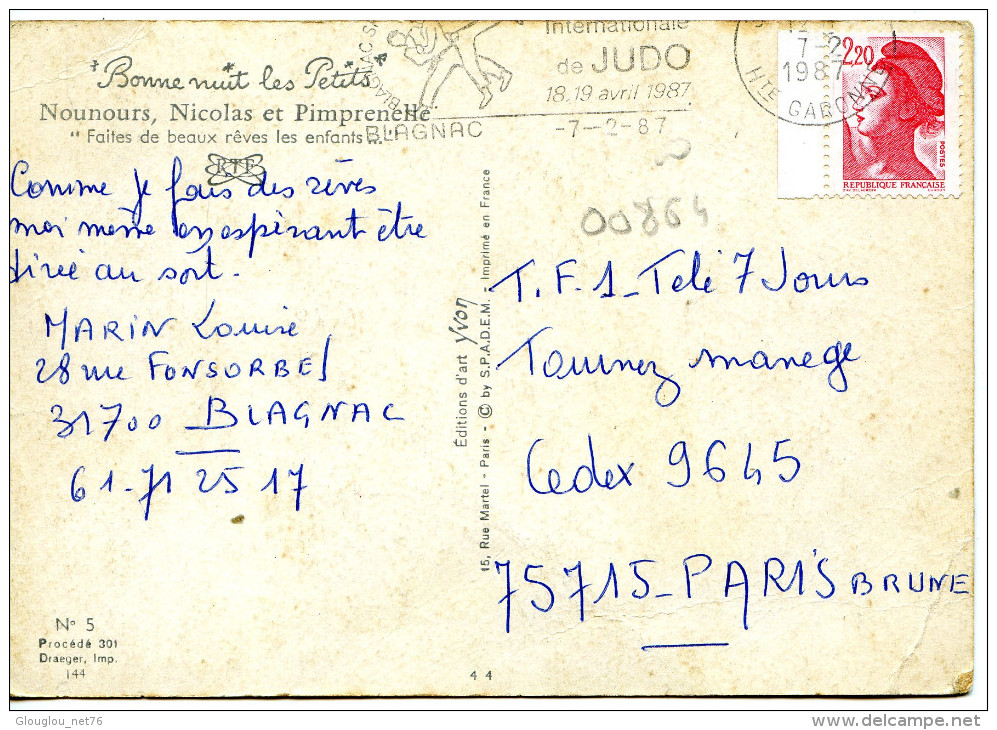 Bonne nuit les Petits
Nounours, Nicolas et Pimprenelle
" Faites de beaux rêves les enfants...
RTF
Comme je fais des rêves
moi même en espérant être
tirée au sort.
MARIN Louise
28 rue FONSORBES
31700 BLAGNAC
61-71 25 17
N° 5
Procédé 301
Draeger, Imp.
144
BLAGNAC
Internationale
de JUDO
18.19 avril 1987
BLAGNAC
-7-2-87
7-2
1987
HTE GARONNE
2,20
POSTES
REPUBLIQUE FRANÇAISE
00864
15, Rue Martel - Paris - © by S.P.A.D.E.M. - Imprimé en France
Éditions d'art Yvon
T.F.1-Télé 7 Jours
Tournez manege
Cedex 9645
75715-PARIS BRUNE
44
Glouglou_net76
www.delcampe.net